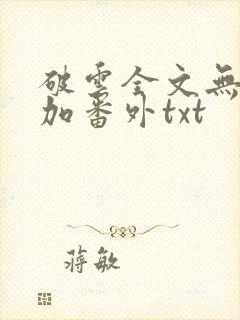 破雲全文無
加番外txt
蔣敏